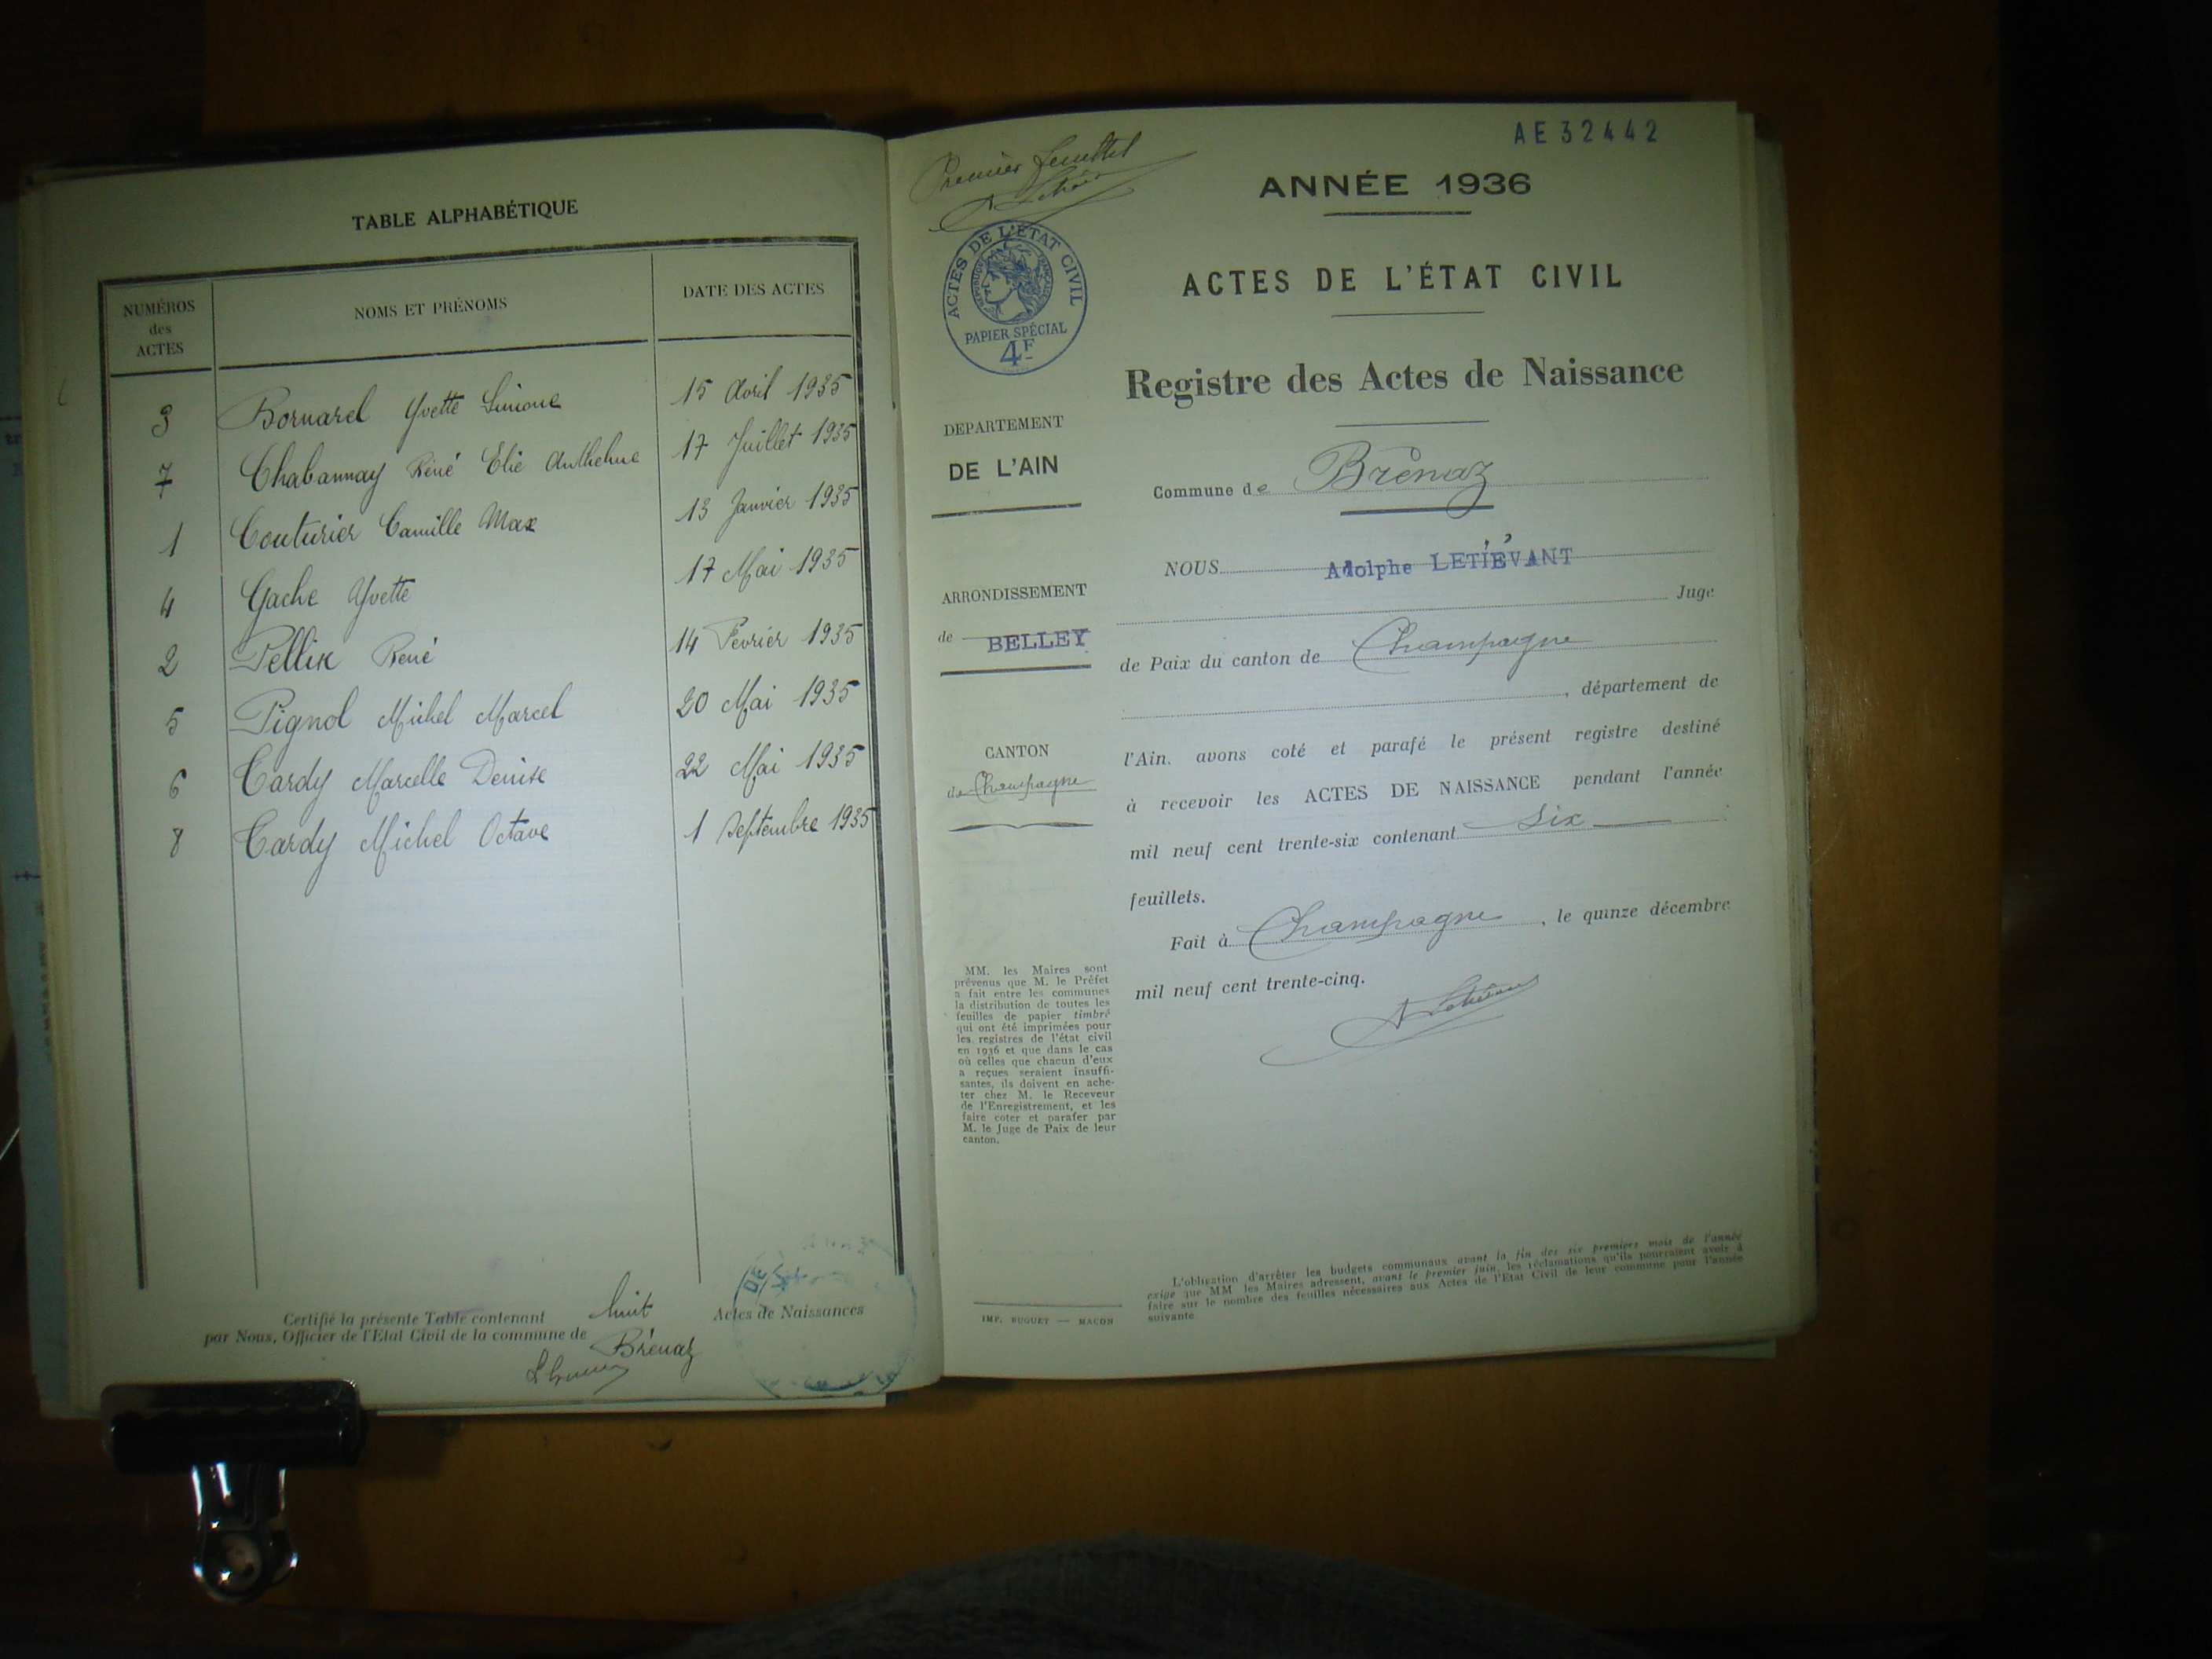 TABLE ALPHABÉTIQUE
NUMÉROS des ACTES
NOMS ET PRÉNOMS
DATE DES ACTES
3 Bornarel Yvette Simone 15 Avril 1935
7 Chabannay Réné Elie Anthelme 17 Juillet 1935
1 Couturier Camille Max 13 Janvier 1935
4 Gache Yvette 17 Mai 1935
2 Pellix René 14 Février 1935
5 Pignol Michel Marcel 20 Mai 1935
6 Tardy Marcelle Denise 22 Mai 1935
8 Tardy Michel Octave 1 Septembre 1935
Certifié la présente Table contenant huit Actes de Naissances
par Nous, Officier de l'Etat Civil de la commune de
Brénaz
Premier feuillet
AE32442
ANNÉE 1936
ACTES DE L'ÉTAT CIVIL
RÉPUBLIQUE FRANÇAISE
PAPIER SPÉCIAL
4F
ACTES DE L'ÉTAT CIVIL
Registre des Actes de Naissance
DEPARTEMENT
DE L'AIN
Commune de Brénaz
NOUS Adolphe LETIÉVANT
ARRONDISSEMENT
de BELLEY
Juge
de Paix du canton de Champagne
, département de
CANTON
de Champagne
l'Ain, avons coté et parafé le présent registre destiné
à recevoir les ACTES DE NAISSANCE pendant l'année
mil neuf cent trente-six contenant six
feuillets.
Fait à Champagne, le quinze décembre
mil neuf cent trente-cinq.
MM. les Maires sont
prévenus que M. le Préfet
a fait entre les communes
la distribution de toutes les
feuilles de papier timbré
qui ont été imprimées pour
les registres de l'état civil
en 1936 et que dans le cas
où celles que chacun d'eux
a reçues seraient insuffi-
santes, ils doivent en ache-
ter chez M. le Receveur
de l'Enregistrement, et les
faire coter et parafer par
M. le Juge de Paix de leur
canton.
IMP. BUGUET — MACON
L'obligation d'arrêter les budgets communaux avant la fin des six premiers mois de l'année
exige que MM les Maires adressent, avant le premier juin, les réclamations qu'ils pourraient avoir à
faire sur le nombre des feuilles nécessaires aux Actes de l'Etat Civil de leur commune pour l'année
suivante